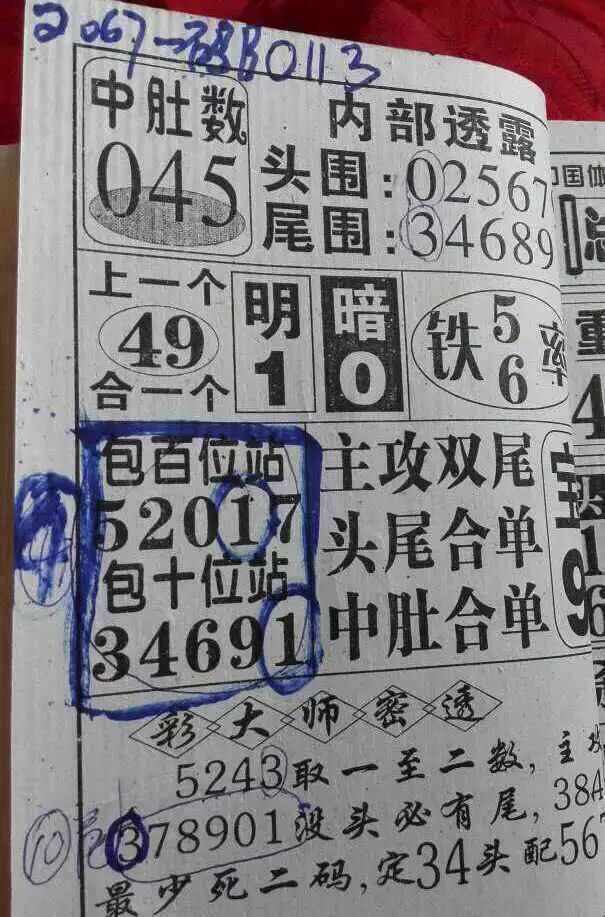 2067一码B0113
中肚数
045
内部透露
头围:02567
尾围:34689
上一个
49
合一个
明
1
暗
0
铁
5
6
率
包百位站
52017
包十位站
34691
主攻双尾
头尾合单
中肚合单
宝
9
中国体
总
重
4
1
6
彩大师密透
5243取一至二数,主攻
378901没头必有尾,384
最少死二码,定34头配567
10